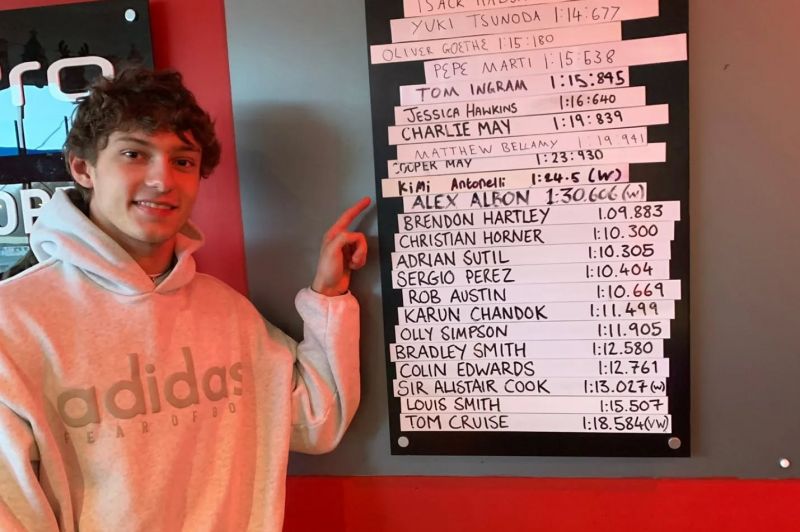 Pro
ISACK HADJAR
YUKI TSUNODA 1:14:677
OLIVER GOETHE 1:15:180
PEPE MARTI 1:15:638
TOM INGRAM 1:15:845
JESSICA HAWKINS 1:16:640
CHARLIE MAY 1:19:839
MATTHEW BELLAMY 1:19.941
COOPER MAY 1:23:930
KiMi Antonelli 1:24.5 (W)
ALEX ALBON 1:30.606 (W)
BRENDON HARTLEY 1.09.883
CHRISTIAN HORNER 1:10.300
ADRIAN SUTIL 1:10.305
SERGIO PEREZ 1:10.404
ROB AUSTIN 1:10.669
KARUN CHANDOK 1:11.499
OLLY SIMPSON 1:11.905
BRADLEY SMITH 1:12.580
COLIN EDWARDS 1:12.761
SIR ALISTAIR COOK 1:13.027(W)
LOUIS SMITH 1:15.507
TOM CRUISE 1:18.584(VW)
adidas
FEAR OF GOD